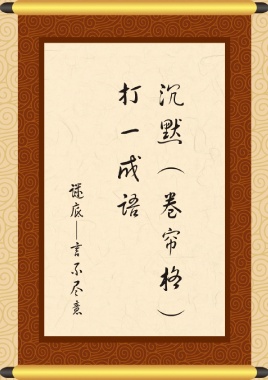 沉默（卷帘格）
打一成语
谜底——言不尽意